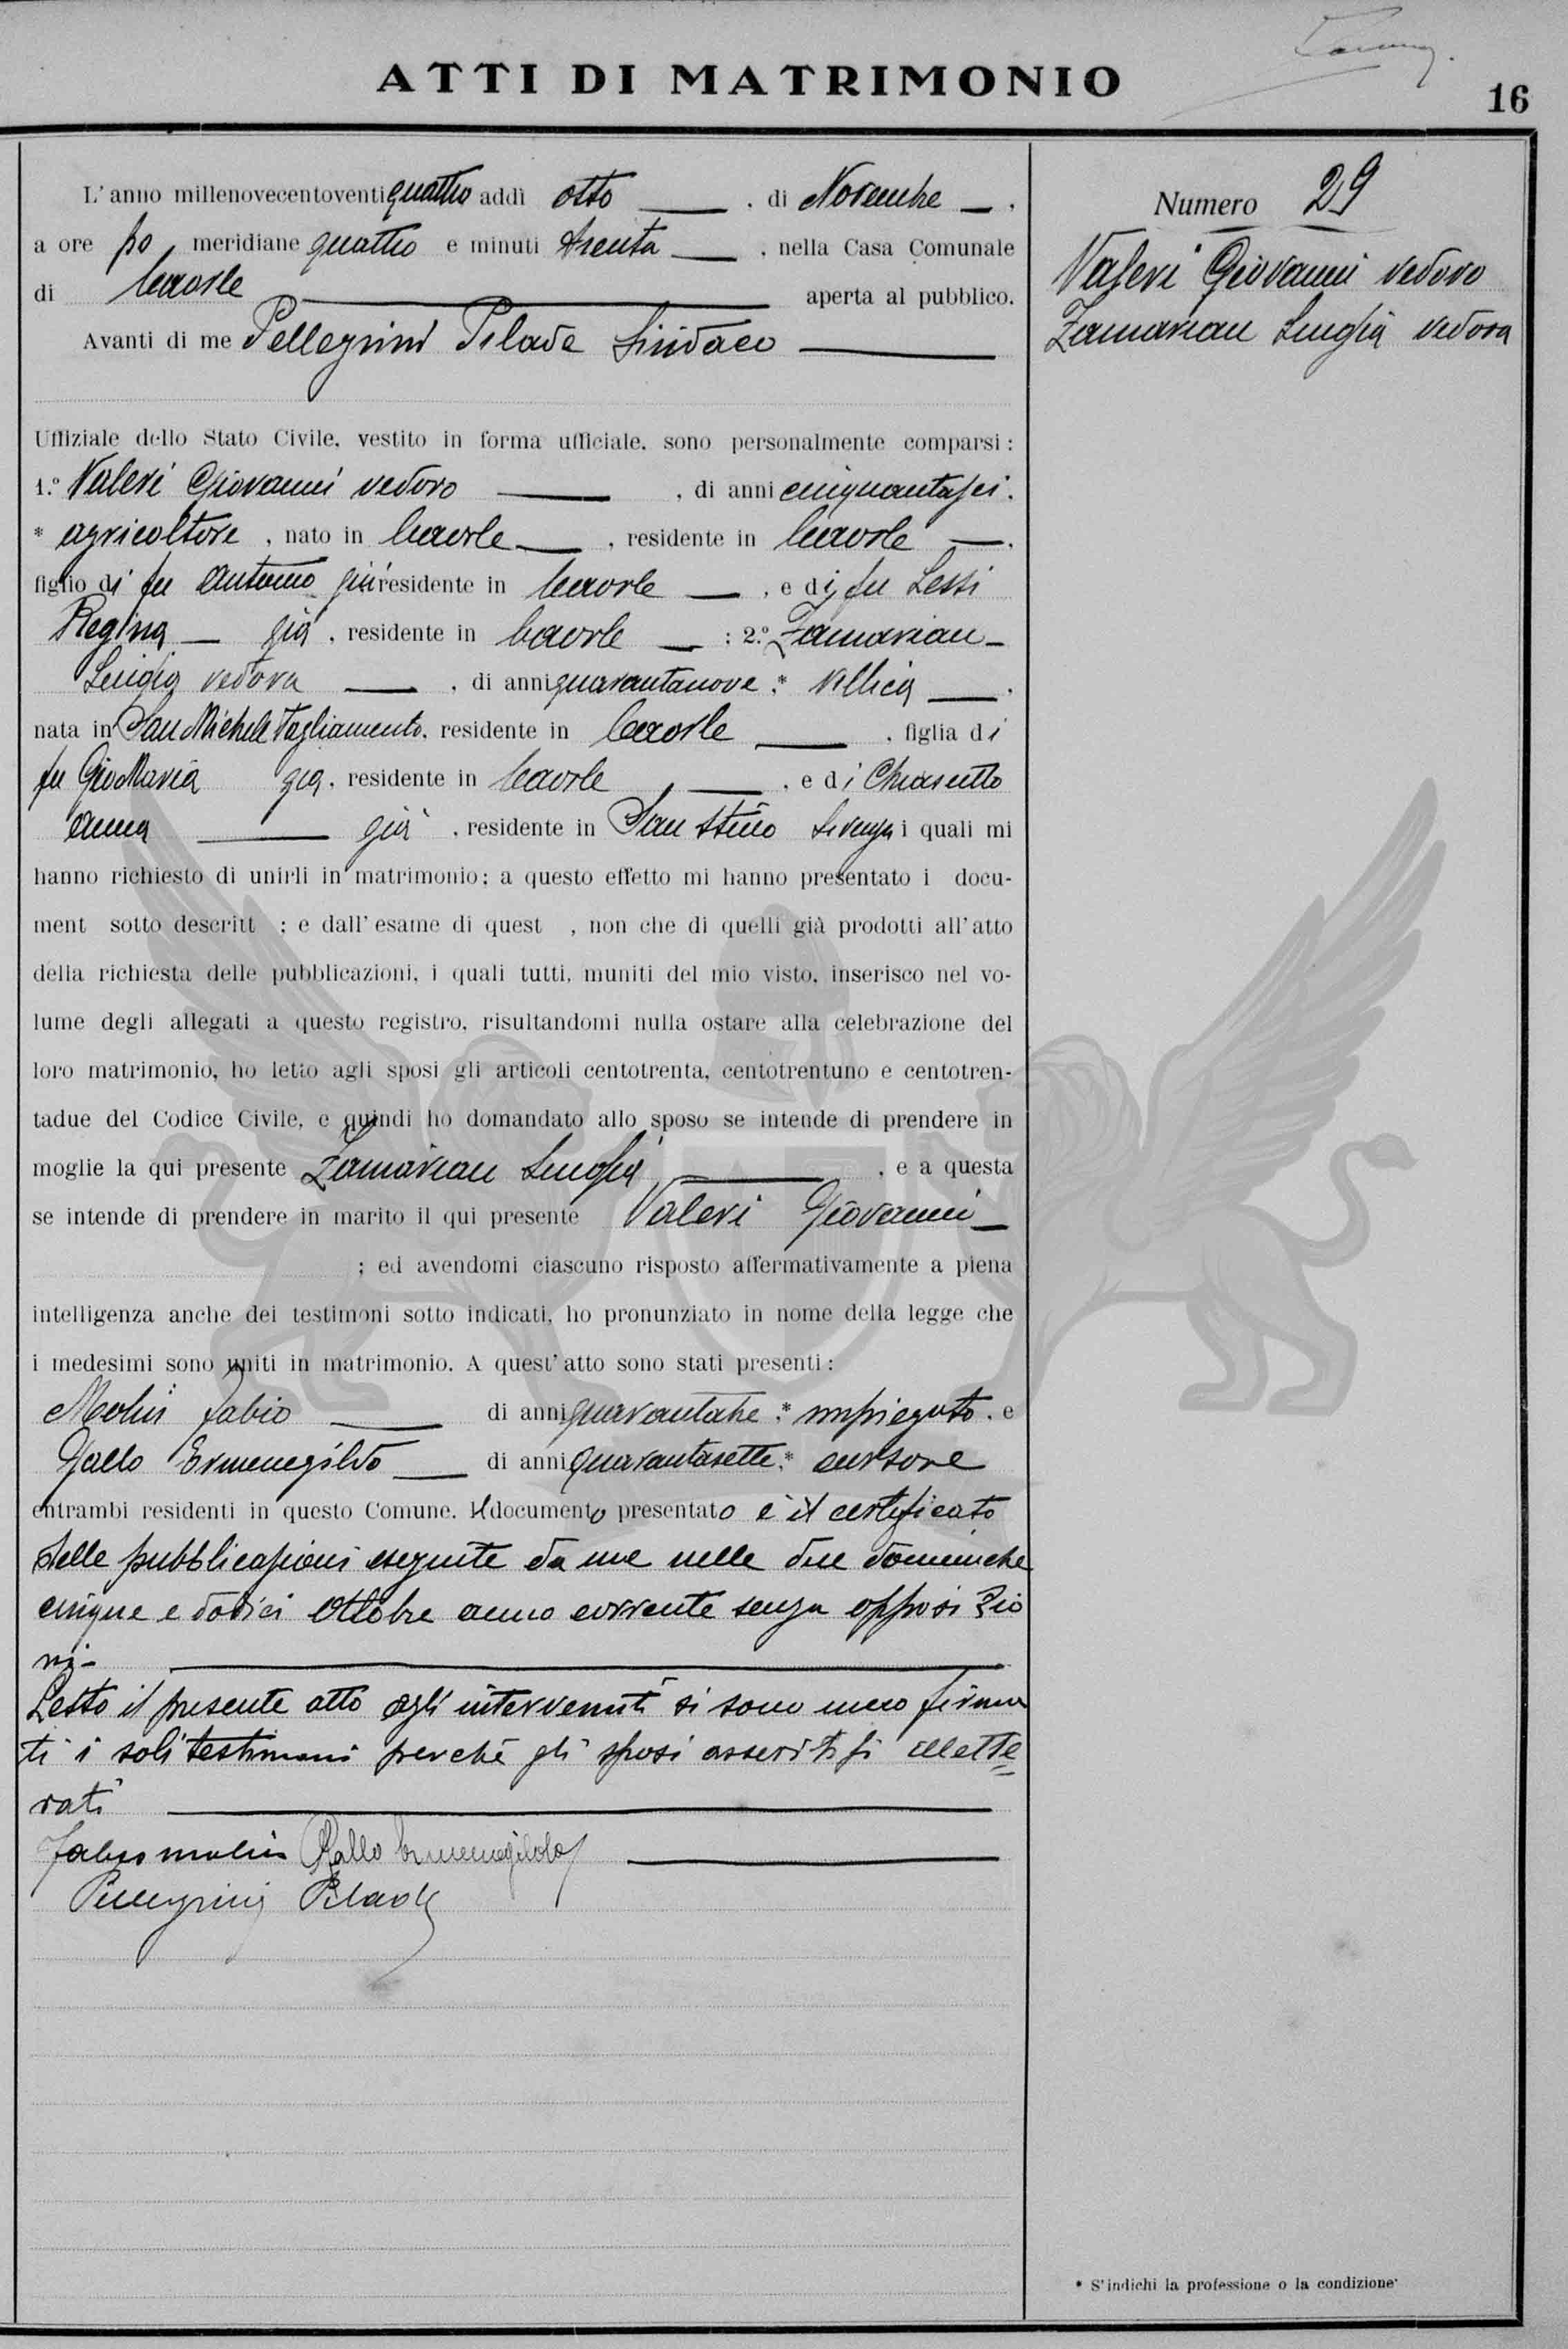 ATTI DI MATRIMONIO
16
L'anno millenovecentoventiquattro addì otto . di Novembre .
a ore po meridiane quattro e minuti trenta , nella Casa Comunale
di Caorle aperta al pubblico.
Avanti di me Pellegrini Pilade Sindaco
Uffiziale dello Stato Civile, vestito in forma ufficiale, sono personalmente comparsi:
1.º Valeri Giovanni vedovo , di anni cinquantasei.
* agricoltore , nato in Caorle , residente in Caorle .
figlio di fu Antonio già residente in Caorle , e di fu Lessi
Regina già , residente in Caorle ; 2.º Zamarian
Luigia vedova , di anni quarantanove ,* villica .
nata in San Michele Tagliamento, residente in Caorle , figlia di
fu GioMaria già , residente in Caorle , e di Chiarutto
Anna già , residente in San Stino Livenza i quali mi
hanno richiesto di unirli in matrimonio; a questo effetto mi hanno presentato i docu-
ment sotto descritt ; e dall'esame di quest , non che di quelli già prodotti all'atto
della richiesta delle pubblicazioni, i quali tutti, muniti del mio visto, inserisco nel vo-
lume degli allegati a questo registro, risultandomi nulla ostare alla celebrazione del
loro matrimonio, ho letto agli sposi gli articoli centotrenta, centotrentuno e centotren-
tadue del Codice Civile, e quindi ho domandato allo sposo se intende di prendere in
moglie la qui presente Zamarian Luigia , e a questa
se intende di prendere in marito il qui presente Valeri Giovanni
; ed avendomi ciascuno risposto affermativamente a piena
intelligenza anche dei testimoni sotto indicati, ho pronunziato in nome della legge che
i medesimi sono uniti in matrimonio. A quest'atto sono stati presenti:
Molin Fabio di anni quarantatre ,* impiegato , e
Gallo Ermenegildo di anni quarantasette ,* cursore
entrambi residenti in questo Comune. Il documento presentato è il certificato
delle pubblicazioni eseguite da me nelle due domeniche
cinque e dodici Ottobre anno corrente senza opposizio
ni-
Letto il presente atto agli intervenuti si sono meco firma
ti i soli testimoni perchè gli sposi asseritisi illette=
rati
Fabio Molin Gallo Ermenegildo
Pellegrini Pilade
Numero 29
Valeri Giovanni vedovo
Zamarian Luigia vedova
* S'indichi la professione o la condizione